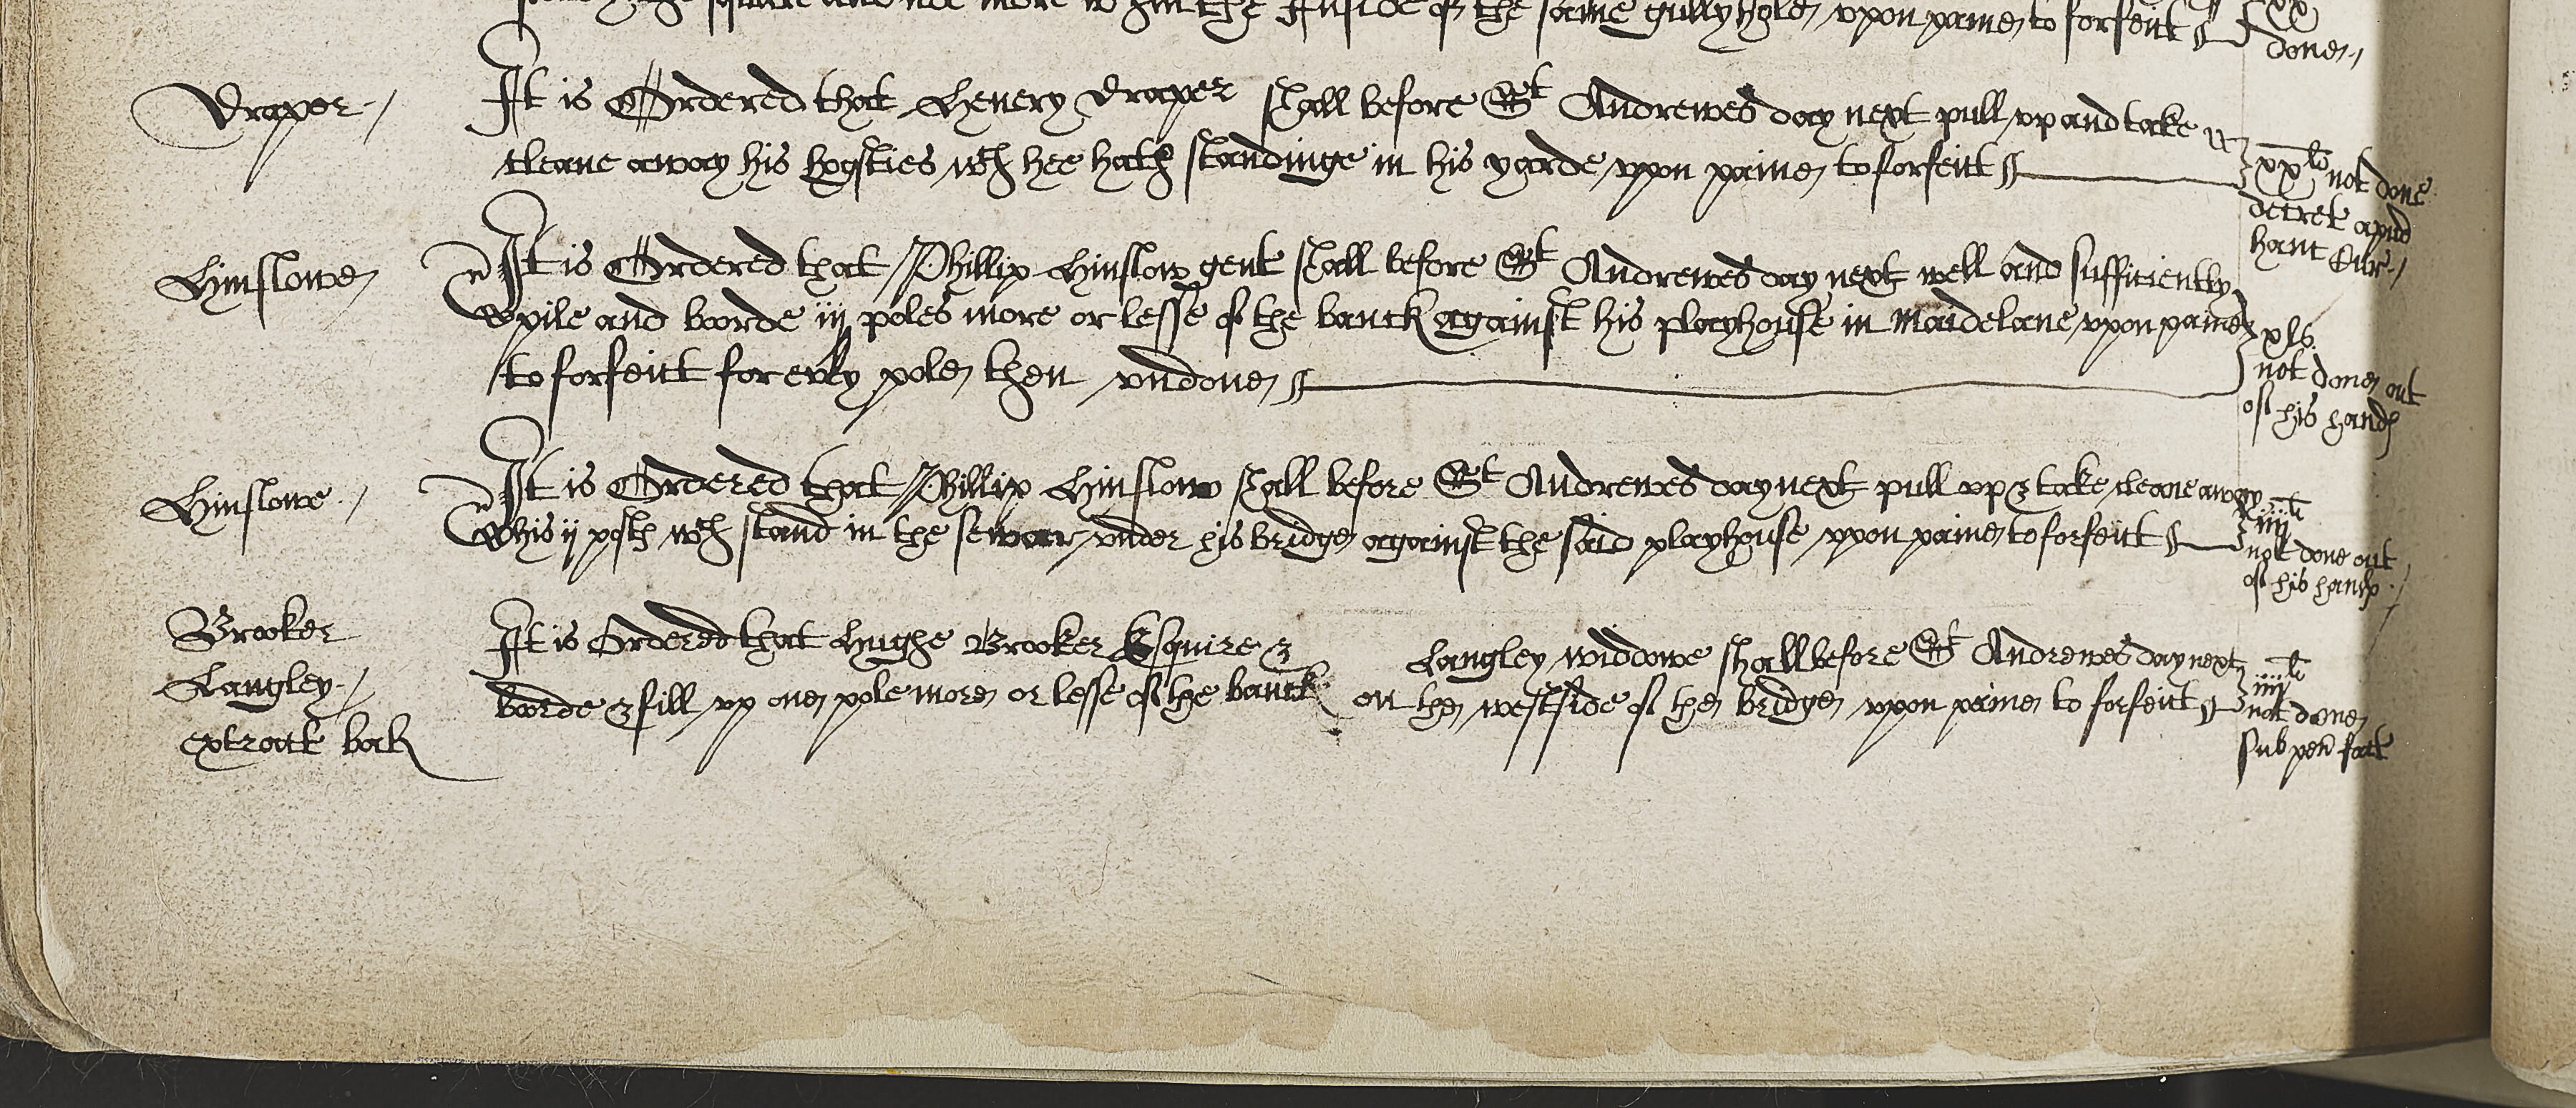 square and noe more wthin the Inside of the same gully hole vpon paine to forfeit xx
done
Draper
It is Ordered that Henery Draper shall before St Andrewes day next pull vp and take
cleane away his hogsties wch hee hath standinge in his yarde vpon paine to forfeit
xxli not done
decret apud
hanc Cur
Hinslowe
It is Ordered that Phillip Hinslow gent shall before St Andrewes day next well and sufficiently
pile and boorde iij poles more or lesse of the banck against his playhouse in Maidelane vpon paine
to forfeit for euery pole then vndone
xls
not done out
of his hands
Hinslowe
It is Ordered that Phillip Hinslow shall before St Andrewes day next pull vp & take cleane away
his ij posts wch stand in the sewar vnder his bridge against the said playhouse vpon paine to forfeit
iiijli
not done out
of his hands
Brooker
Langley
extract back
It is Ordered that Hughe Brooker Esquire & Langley widdowe shall before St Andrewes day next
boorde & fill vp one pole more or lesse of the banck on the west side of the bridge vpon paine to forfeit
iiijli
not done
sub pen fact